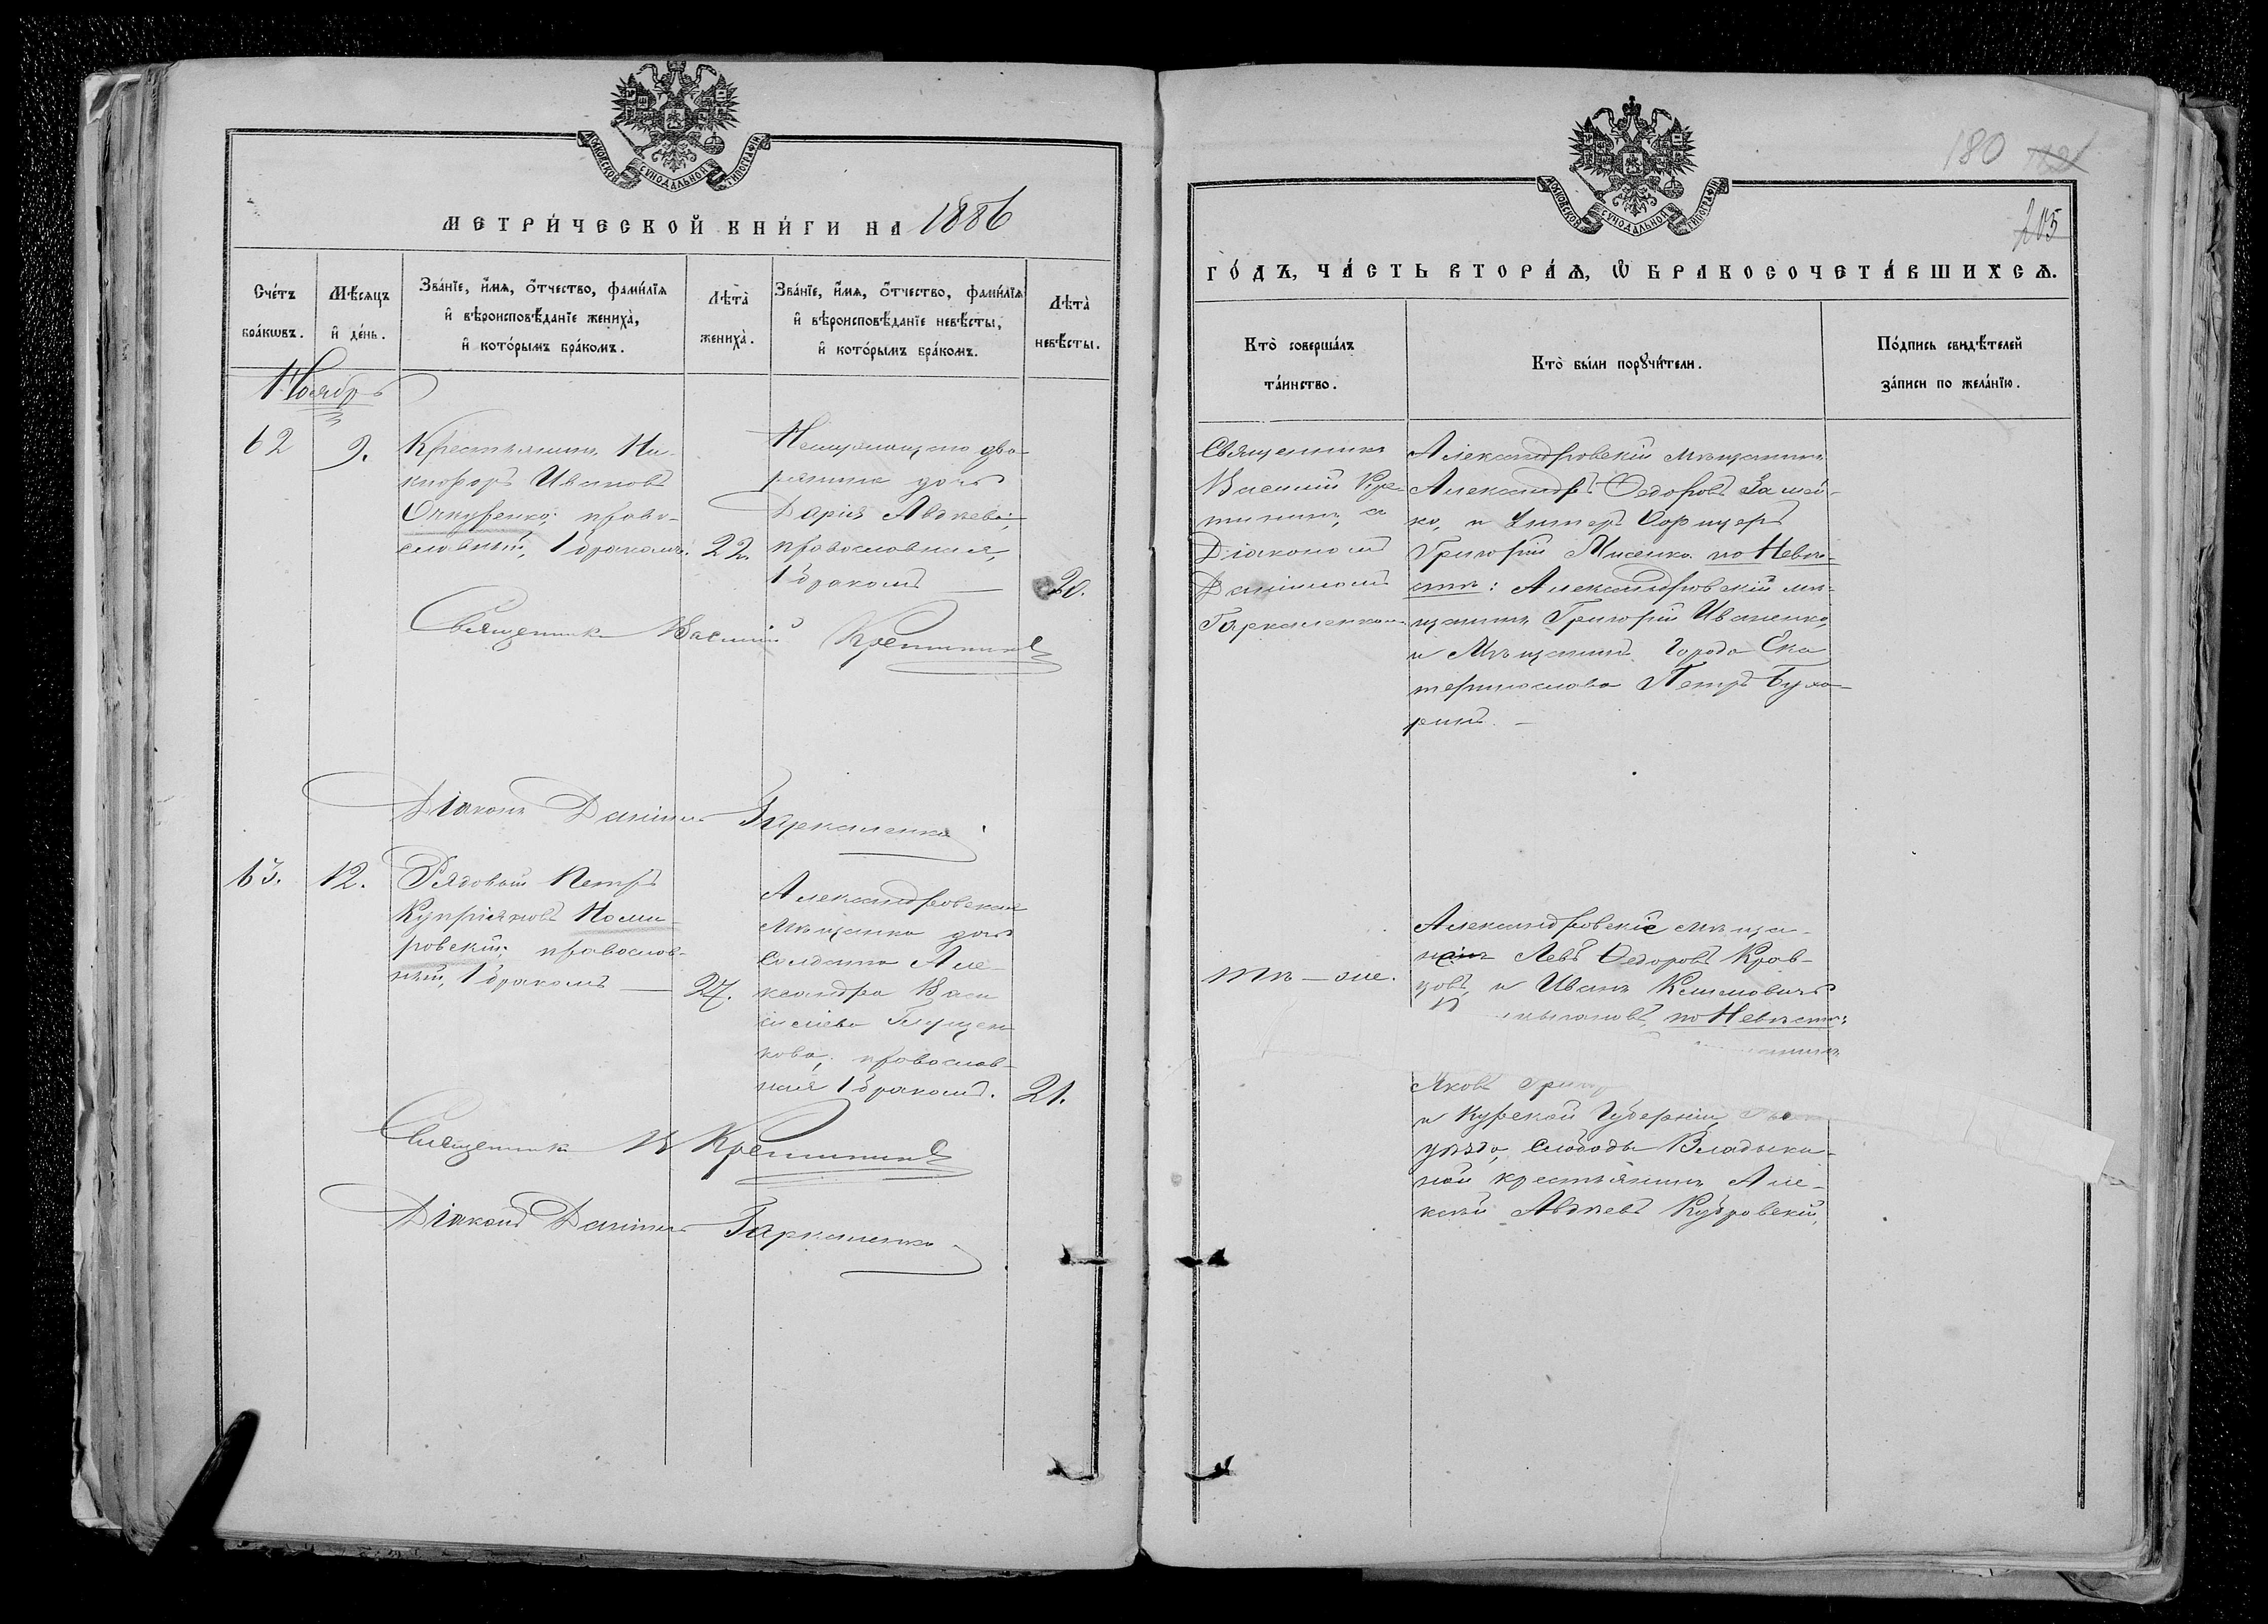 МОСКОВСКОЙ СѴНОДАЛЬНОЙ ТИПОГРАФІИ
МЕТРИ́ЧЕСКОЙ КНИ́ГИ НА 1886
Сче́тъ бра́кωвъ.
Мѣ́сяцъ и҆ де́нь.
Зва́нїе, и҆́мя, ѻ҆́тчество, фами́лїя
и҆ вѣроисповѣ́данїе жениха̀,
и҆ кото́рымъ бра́комъ.
Лѣта̀ жениха̀.
Зва́нїе, и҆́мя, ѻ҆́тчество, фами́лїя
и҆ вѣроисповѣ́данїе невѣ́сты,
и҆ кото́рымъ бра́комъ.
Лѣта̀ невѣ́сты.
Ноябрь
62
9.
Крестьянинъ Ни-
кифоръ Ивановъ
православный, 1 бракомъ.
22.
дво-
рянина дочь
Дарія Авдѣева,
православная,
1 бракомъ
20.
Священникъ Василій
Діаконъ Даніилъ Гаркаленко
63.
12.
Рядовый Петръ
Купріяновъ
православ-
ный, 1 бракомъ
27.
Александровская
Мѣщанка дочь
Солдата Але-
ксандра Васи
православ-
ная 1 бракомъ.
21.
Священникъ В
Діаконъ Даніилъ Гаркаленко
МОСКОВСКОЙ СѴНОДАЛЬНОЙ ТИПОГРАФІИ
180
205
ГО́ДЪ, ЧА́СТЬ ВТОРА́Я, Ѡ҆ БРАКОСОЧЕТА́ВШИХСЯ.
Кто̀ соверша́лъ
та́инство.
Кто̀ бы́ли порꙋчи́тели.
По́дпись свидѣ́телей
за́писи по жела́нїю.
Священникъ
Василій
съ
Діакономъ
Даніиломъ
Гаркаленкомъ
Александровскій мѣщанинъ
Александръ Ѳедоровъ Замай-
ко, и Унтеръ Офицеръ
Григорій Мисенко. по Невѣ-
стѣ: Александровскій мѣ-
щанинъ Григорій Иваненко,
и Мѣщанинъ города Ека
теринослава Петръ Буха-
ринъ.
тѣ-же.
Александровскіе мѣща-
Левъ Ѳедоровъ Крав-
цовъ, и Иванъ Климовичъ
по Невѣстѣ:
Яковъ
и Курской Губерніи
уѣзда, Слободы
крестьянинъ Але-
ксѣй Авдѣевъ